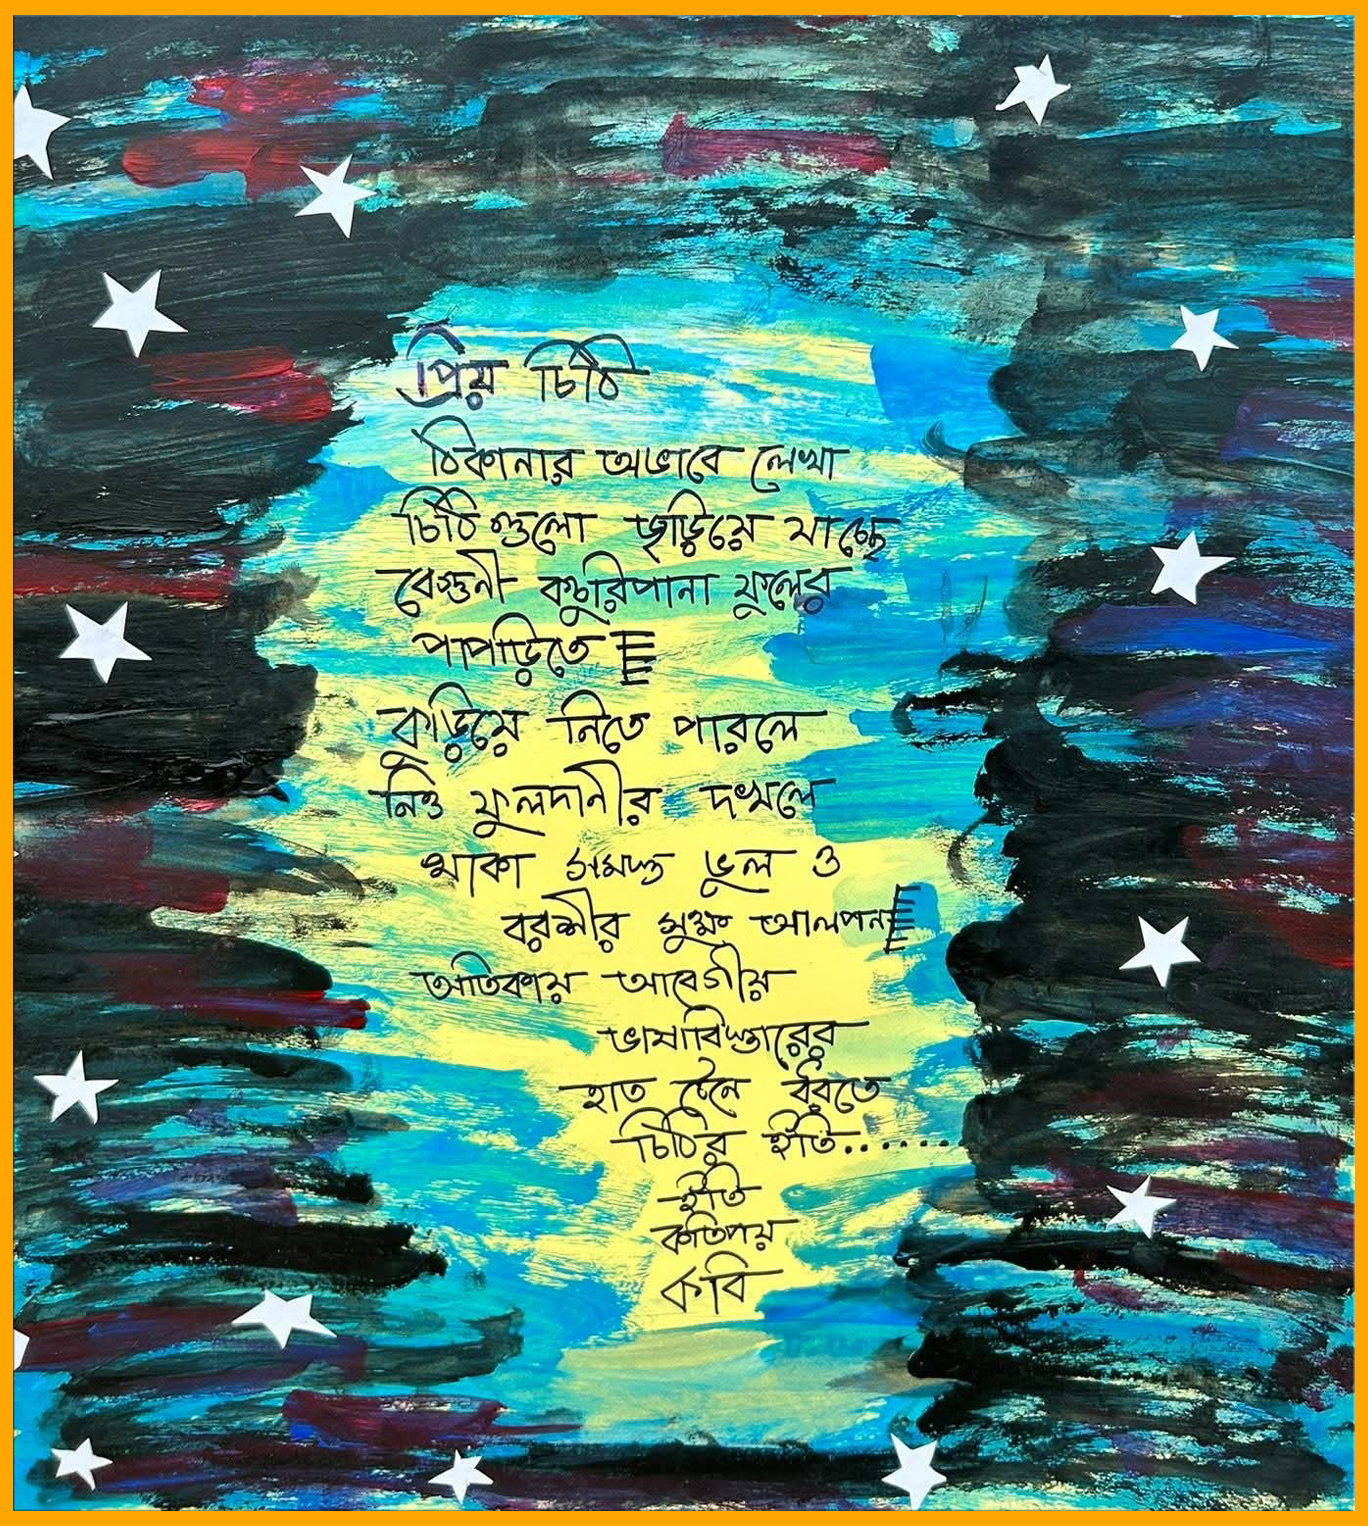 প্রিয় চিঠি
ঠিকানার অভাবে লেখা
চিঠি গুলো ছড়িয়ে যাচ্ছে
বেগুনী কচুরিপানা ফুলের
পাপড়িতে
কুড়িয়ে নিতে পারলে
নিও ফুলদানীর দখলে
থাকা সমস্ত ভুল ও
বরশীর সুক্ষ আলপনা
অতিকায় আবেগীয়
ভাষাবিস্তারের
হাত টেনে ধরতে
চিঠির ইতি.......
ইতি
কতিপয়
কবি